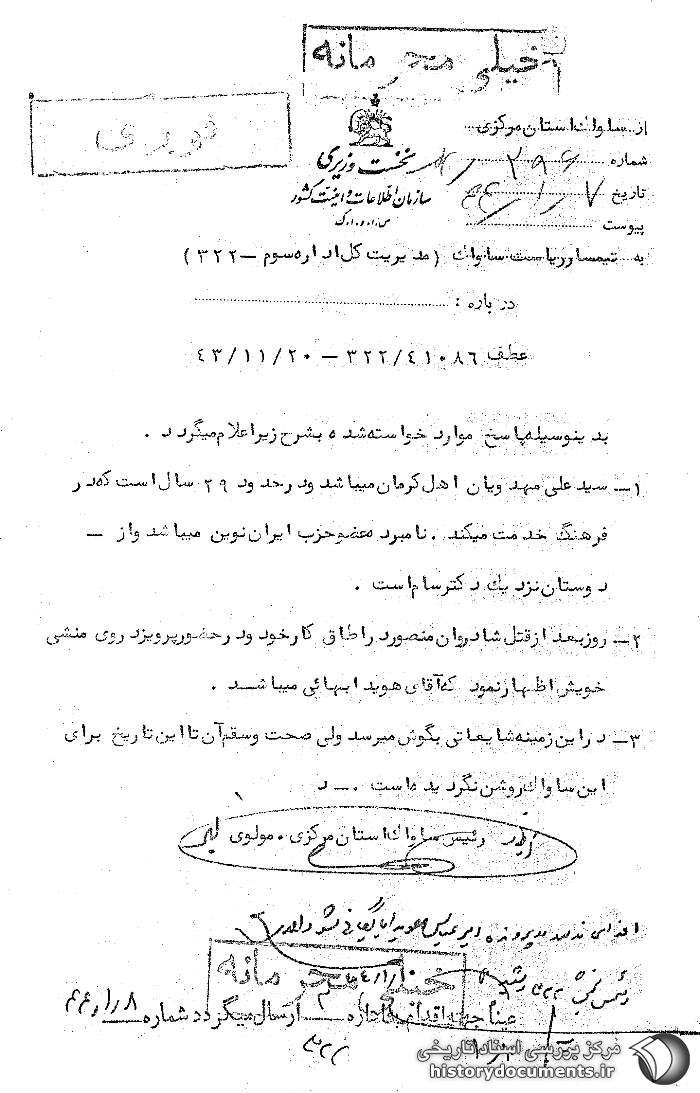 خیلی محرمانه
فوری
از ساواک استان مرکزی
شماره ۲۹۶
تاریخ ۷/۱/۴۴
پیوست
نخست وزیری
سازمان اطلاعات و امنیت کشور
س.ا.و.ا.ک
به تیمسار ریاست ساواک (مدیریت کل اداره سوم – ۳۲۲)
در باره :
عطف ۳۲۲/۴۱۰۸۶ – ۴۳/۱۱/۲۰
بدینوسیله پاسخ موارد خواسته شده بشرح زیر اعلام میگردد .
۱– سید علی مهدویان اهل کرمان میباشد و در حدود ۲۹ سال است که در
فرهنگ خدمت میکند . نامبرد عضو حزب ایران نوین میباشد و از –
دوستان نزدیک دکتر سام است .
۲– روز بعد از قتل شادروان منصور در اطاق کار خود و در حضور پرویز دروی منشی
خویش اظهار نمود که آقای هویدا بهائی میباشد .
۳– در این زمینه شایعاتی بگوش میرسد ولی صحت و سقم آن تا این تاریخ برای
این ساواک روشن نگردیده است . – د
رئیس ساواک استان مرکزی . مولوی
خیلی محرمانه
رئیس بخش ۳۲۲
عیناً جهت اقدام به اداره ارسال میگردد شماره ۸/۱/۴۴
۳۲۲
مرکز بررسی اسناد تاریخی
historydocuments.ir